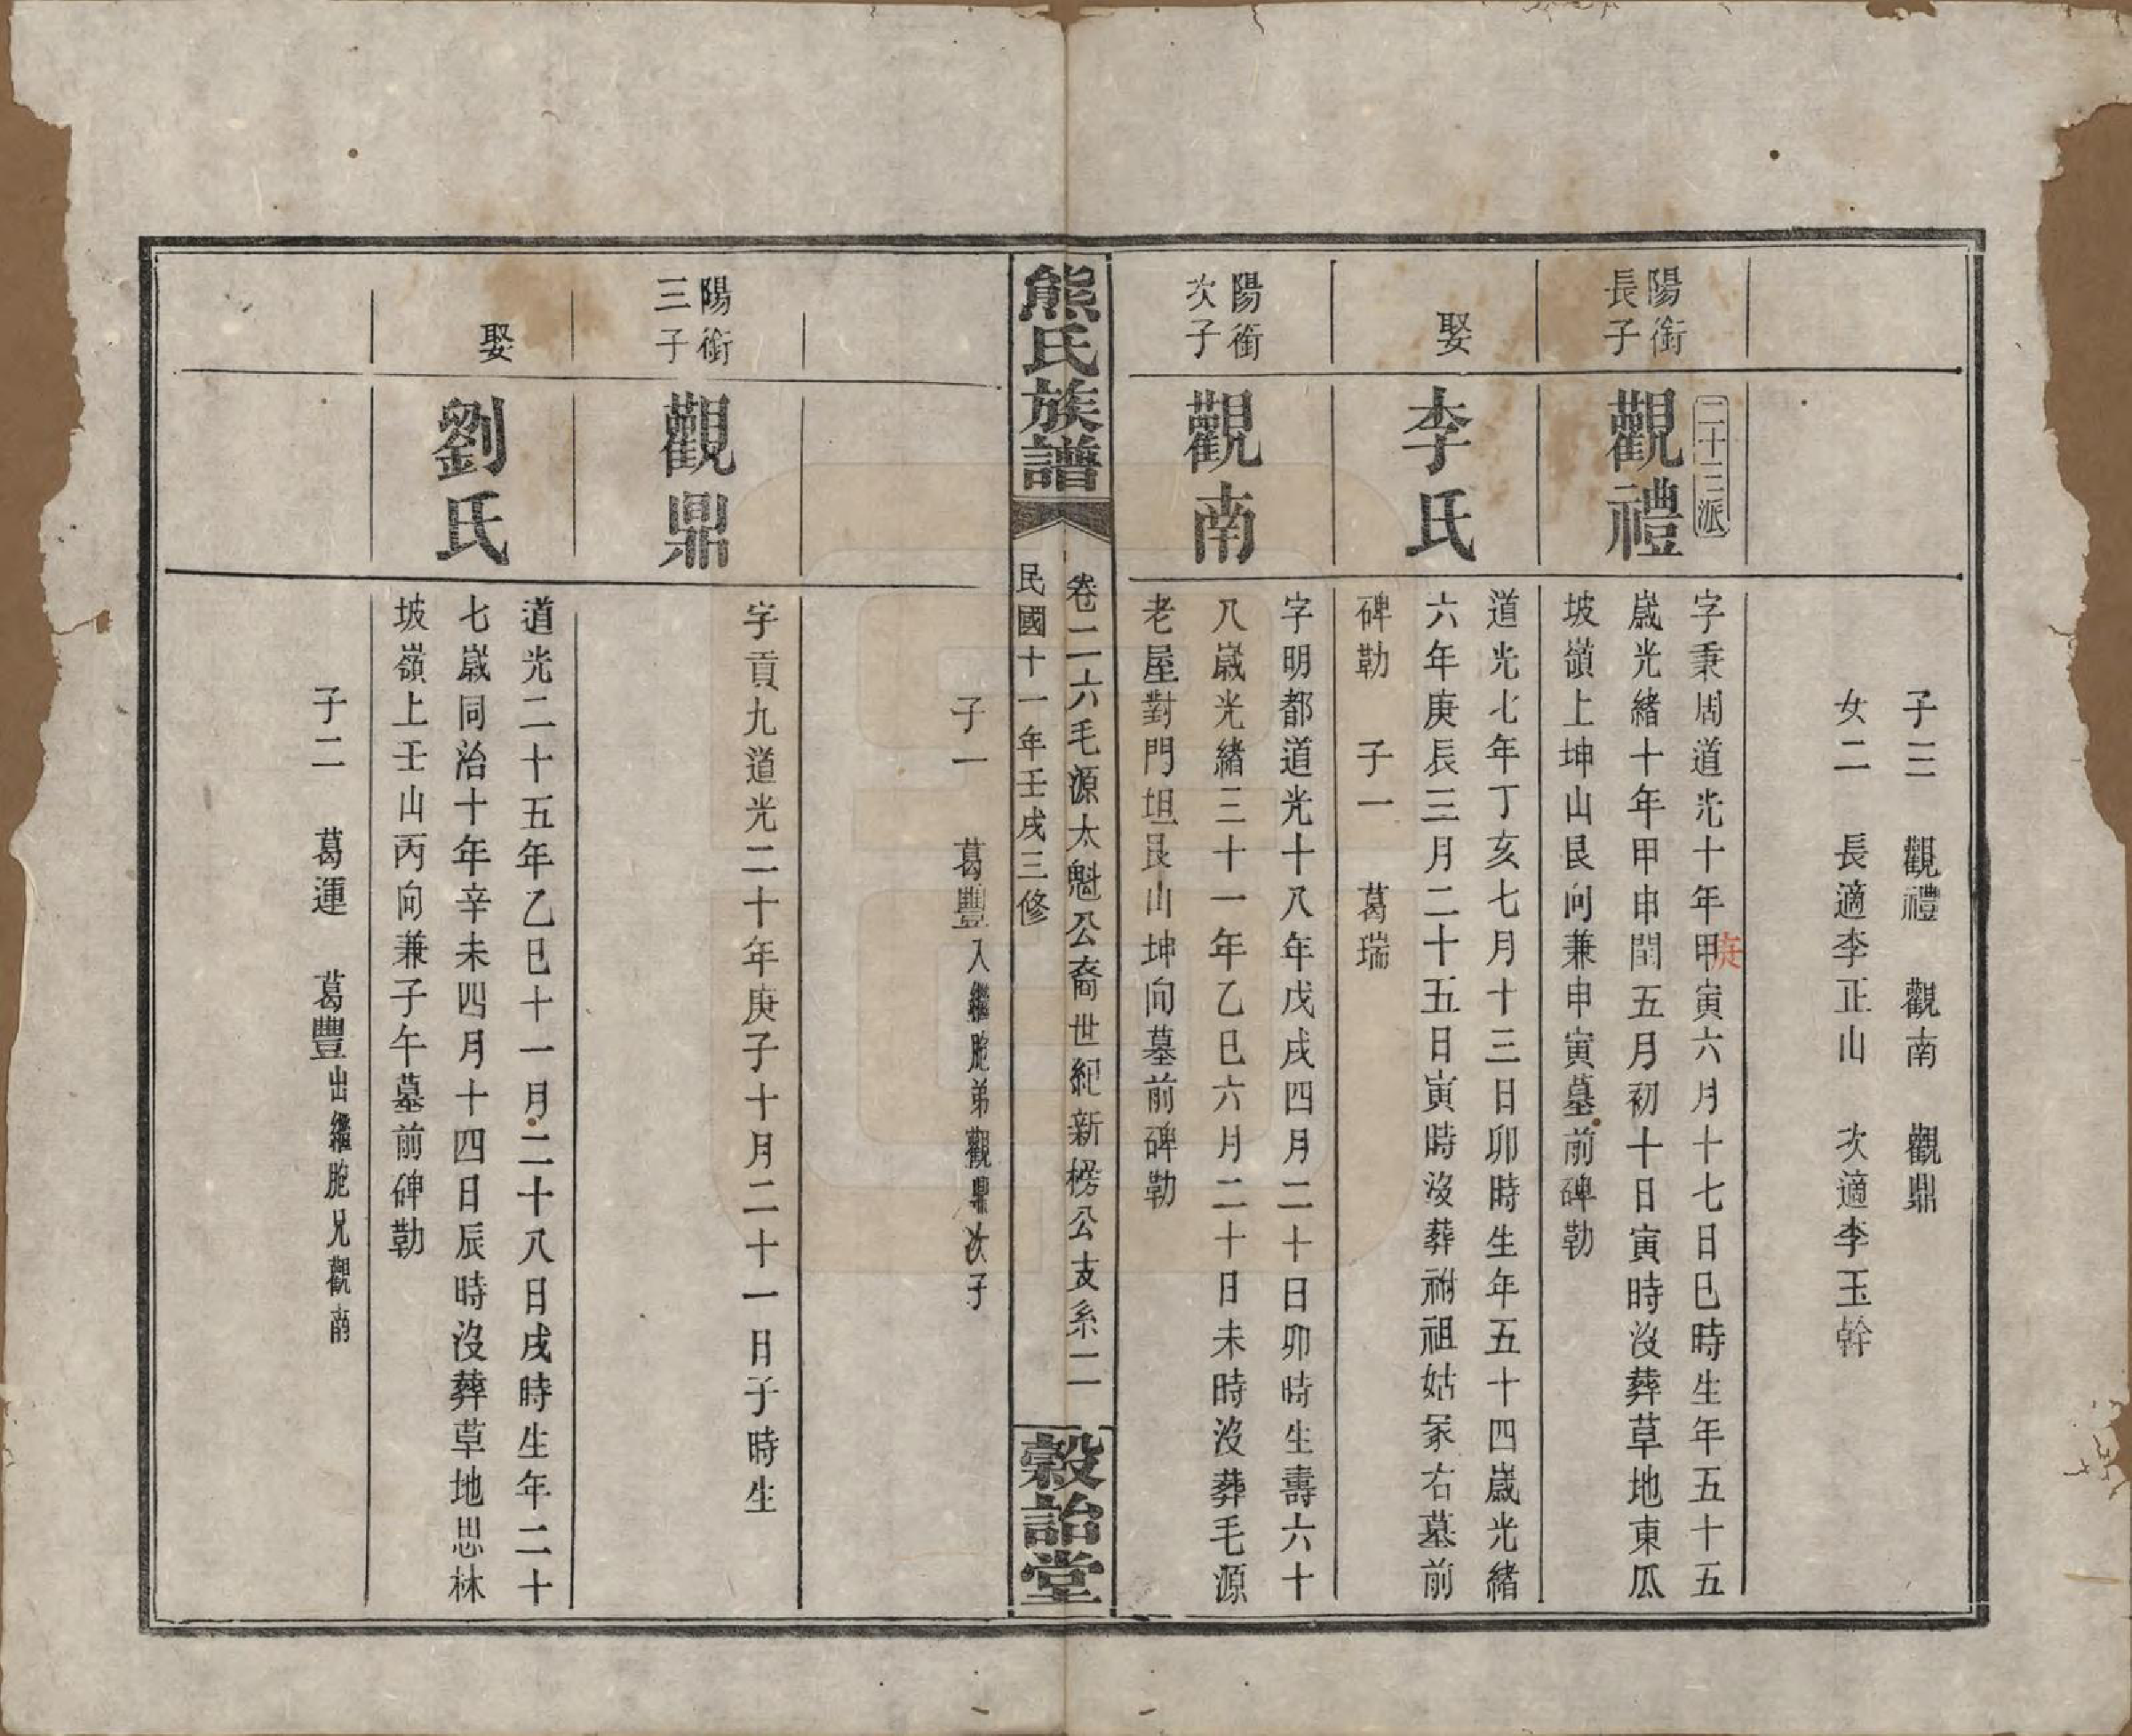 子三　觀禮　觀南　觀鼎
女二　長適李正山　次適李玉幹
二十三派
陽銜
長子
觀禮
字秉周道光十年甲寅六月十七日巳時生年五十五
歲光緒十年甲申閏五月初十日寅時沒葬草地東瓜
坡嶺上坤山艮向兼申寅墓前碑勒
娶
李氏
道光七年丁亥七月十三日卯時生年五十四歲光緒
六年庚辰三月二十五日寅時沒葬祔祖姑冢右墓前
碑勒　子一　葛瑞
陽銜
次子
觀南
字明都道光十八年戊戌四月二十日卯時生壽六十
八歲光緒三十一年乙巳六月二十日未時沒葬毛源
老屋對門坦艮山坤向墓前碑勒
熊氏族譜
卷二六毛源太魁公裔世紀新楞公支系二
民國十一年壬戌三修
穀詒堂
子一　葛豐入繼胞弟觀鼎次子
陽銜
三子
觀鼎
字貢九道光二十年庚子十月二十一日子時生
娶
劉氏
道光二十五年乙巳十一月二十八日戌時生年二十
七歲同治十年辛未四月十四日辰時沒葬草地思林
坡嶺上壬山丙向兼子午墓前碑勒
子二　葛運　葛豐出繼胞兄觀南